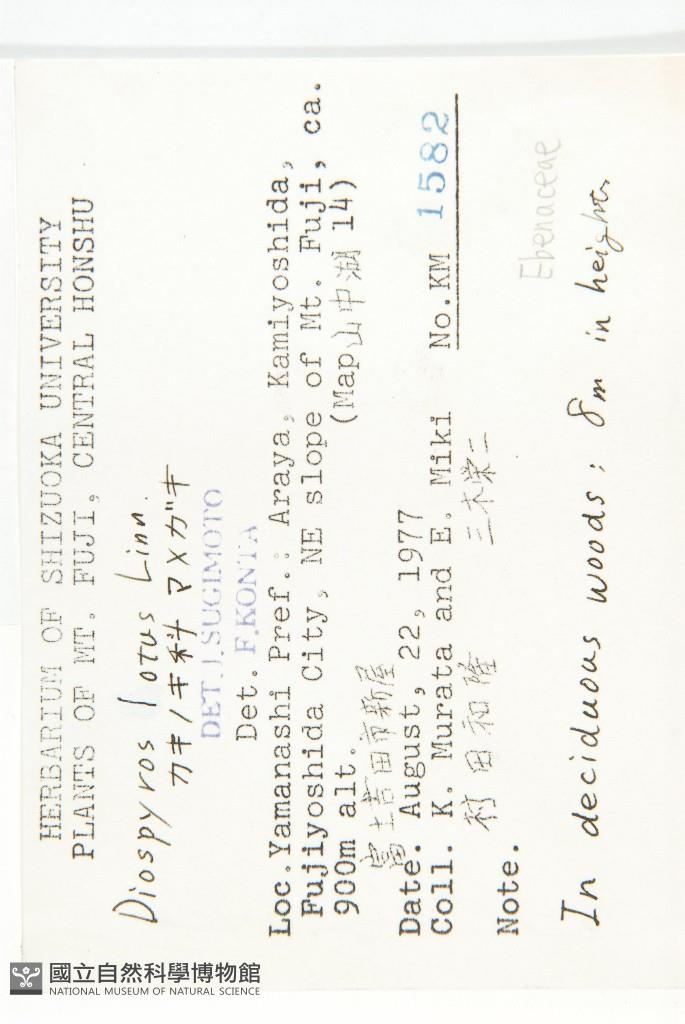 HERBARIUM OF SHIZUOKA UNIVERSITY
PLANTS OF MT. FUJI, CENTRAL HONSHU
Diospyros lotus Linn.
カキノキ科 マメガキ
DET. J. SUGIMOTO
Det. F. KONTA
Loc. Yamanashi Pref.: Araya, Kamiyoshida,
Fujiyoshida City, NE slope of Mt. Fuji, ca.
900m alt. (Map 山中湖 14)
富士吉田市新屋
Date. August, 22, 1977
Coll. K. Murata and E. Miki No.KM 1582
村田和隆 三木栄二
Note.
Ebenaceae
In deciduous woods; 8m in height.
國立自然科學博物館
NATIONAL MUSEUM OF NATURAL SCIENCE